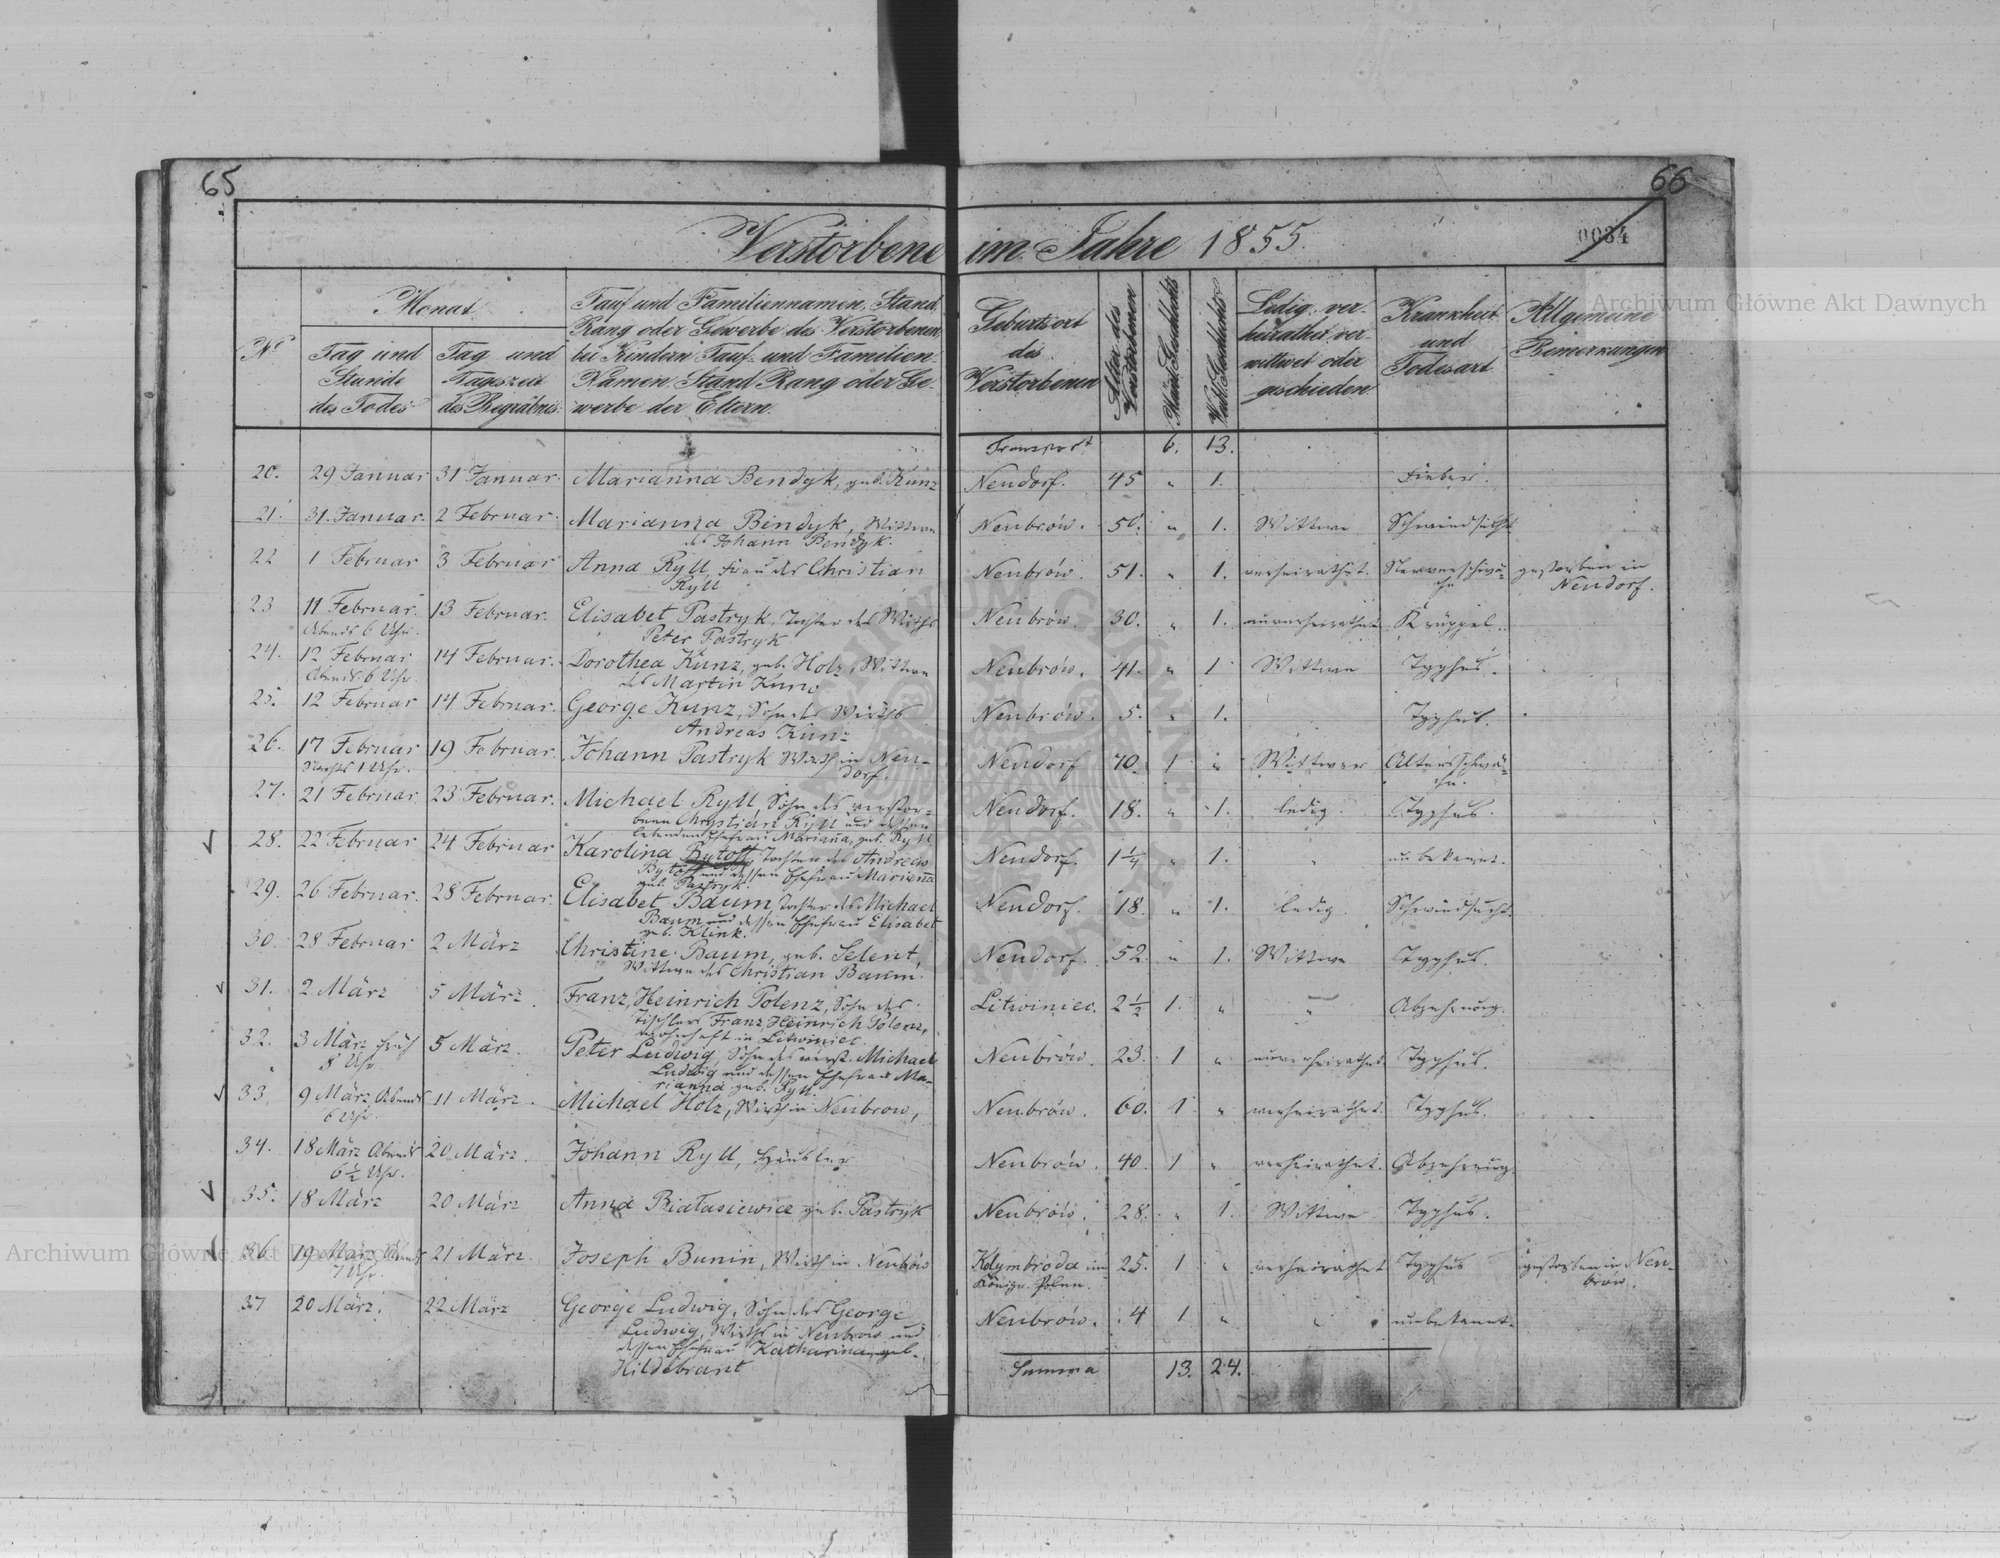 65
66
Verstorbene im Jahre 1855.
0034
Archiwum Główne Akt Dawnych
Nº
Monat
Tag und Stunde des Todes
Tag und Tageszeit des Begräbnis.
Tauf und Familiennamen, Stand,
Rang oder Gewerbe des Verstorbenen,
bei Kindern Tauf- und Familien
Namen, Stand Rang oder Ge-
werbe der Eltern.
Geburtsort des Verstorbenen
Alter des Verstorbenen
Mänl. Geschlechts
Weibl. Geschlechts
Ledig, ver-
heirathet ver-
wittwet oder
geschieden
Krankheit und Todesart
Allgemeine Bemerkungen
Transport 6. 13.
20. 29 Januar 31 Januar. Marianna Bendyk, geb. Kunz Neudorf. 45 " 1. Fieber.
21. 31. Januar. 2 Februar. Marianna Bendyk, Wittwe Neubrów. 50. " 1. Wittwe Schwindsucht
des Johann Bendyk.
22 1 Februar 3 Februar Anna Ryll, Frau des Christian Neubrów. 51. " 1. verheirathet. Nervenschwä- gestorben in
Ryll che Neudorf.
23 11 Februar. 13 Februar. Elisabet Pastryk, Tochter des Wirths Neubrów. 30. " 1. unverheirathet Krüppel.
Abends 6 Uhr. Peter Pastryk
24. 12 Februar 14 Februar. Dorothea Kunz, geb. Holz, Wittwe Neubrów. 41. " 1 Wittwe Typhus.
Abends 6 Uhr. des Martin Kunz
25. 12 Februar 14 Februar. George Kunz, Sohn des Wirths Neubrów. 5. " 1. Typhus.
Andreas Kunz
26. 17 Februar 19 Februar. Johann Pastryk Wirth in Neu- Neudorf 70. 1 " Wittwer Altersschwä-
Nachts 1 Uhr. dorf. che.
27. 21 Februar 23 Februar. Michael Ryll Sohn des verstor- Neudorf. 18. " 1. ledig. Typhus.
benen Chrystian Ryll und dessen
lebenden Ehefrau Marianna, geb. Ryll
28. 22 Februar 24 Februar Karolina Bytoff, Tochter des Andreas Neudorf. 1 1/4 " 1. " unbekannt.
Bytoff und dessen Ehefrau Marienna
geb. Pastryk.
29. 26 Februar. 28 Februar. Elisabet Baum, Tochter des Michael Neudorf. 18. " 1. ledig. Schwindsucht.
Baum und dessen Ehefrau Elisabet
geb. Klink.
30 28 Februar 2 März Christine Baum, geb. Selent, Neudorf. 52. " 1. Wittwe Typhus.
Wittwe des Christian Baum.
31. 2 März 5 März. Franz, Heinrich Polenz, Sohn des Litwiniec. 2 1/2 1. " " Abzehrung.
Tischlers Franz, Heinrich Polenz,
wohnhaft in Litwiniec.
32. 3 März früh 5 März. Peter Ludwig, Sohn des verst. Michael Neubrów. 23. 1 " unverheirathet Typhus.
8 Uhr. Ludwig und dessen Ehefrau Ma-
rianna geb. Ryll.
33. 9 März Abends 11 März. Michael Holz, Wirth in Neubrow, Neubrów. 60. 1 " verheirathet Typhus.
6 Uhr.
34. 18 März Abends 20 März. Johann Ryll, Häusler Neubrów. 40. 1 " verheirathet. Abzehrung.
6 1/2 Uhr.
35. 18 März 20 März Anna Białasiewicz geb. Pastryk Neubrów. 28. " 1. Wittwe Typhus.
36. 19 März Abends 21 März. Joseph Bunin, Wirth in Neubrów Kdymbroda im 25. 1 " verheirathet Typhus gestorben in Neu-
7 Uhr. Königr. Polen. brów.
37 20 März. 22 März George Ludwig, Sohn des George Neubrów. 4 1 " " unbekannt.
Ludwig, Wirths in Neubrow und
dessen Ehefrau Katharina, geb.
Hildebrant
Summa 13. 24.
Archiwum Główne Akt Dawnych